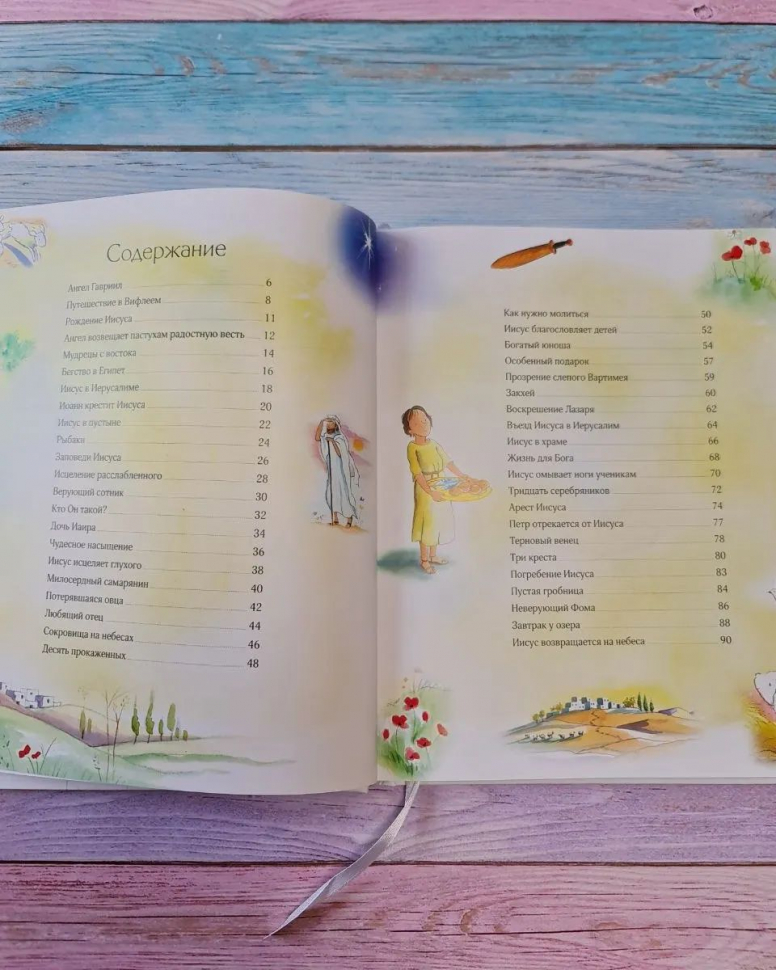 Содержание
Ангел Гавриил 6
Путешествие в Вифлеем 8
Рождение Иисуса 11
Ангел возвещает пастухам радостную весть 12
Мудрецы с востока 14
Бегство в Египет 16
Иисус в Иерусалиме 18
Иоанн крестит Иисуса 20
Иисус в пустыне 22
Рыбаки 24
Заповеди Иисуса 26
Исцеление расслабленного 28
Верующий сотник 30
Кто Он такой? 32
Дочь Иаира 34
Чудесное насыщение 36
Иисус исцеляет глухого 38
Милосердный самарянин 40
Потерявшаяся овца 42
Любящий отец 44
Сокровища на небесах 46
Десять прокаженных 48
Как нужно молиться 50
Иисус благословляет детей 52
Богатый юноша 54
Особенный подарок 57
Прозрение слепого Вартимея 59
Закхей 60
Воскрешение Лазаря 62
Въезд Иисуса в Иерусалим 64
Иисус в храме 66
Жизнь для Бога 68
Иисус омывает ноги ученикам 70
Тридцать серебряников 72
Арест Иисуса 74
Петр отрекается от Иисуса 77
Терновый венец 78
Три креста 80
Погребение Иисуса 83
Пустая гробница 84
Неверующий Фома 86
Завтрак у озера 88
Иисус возвращается на небеса 90